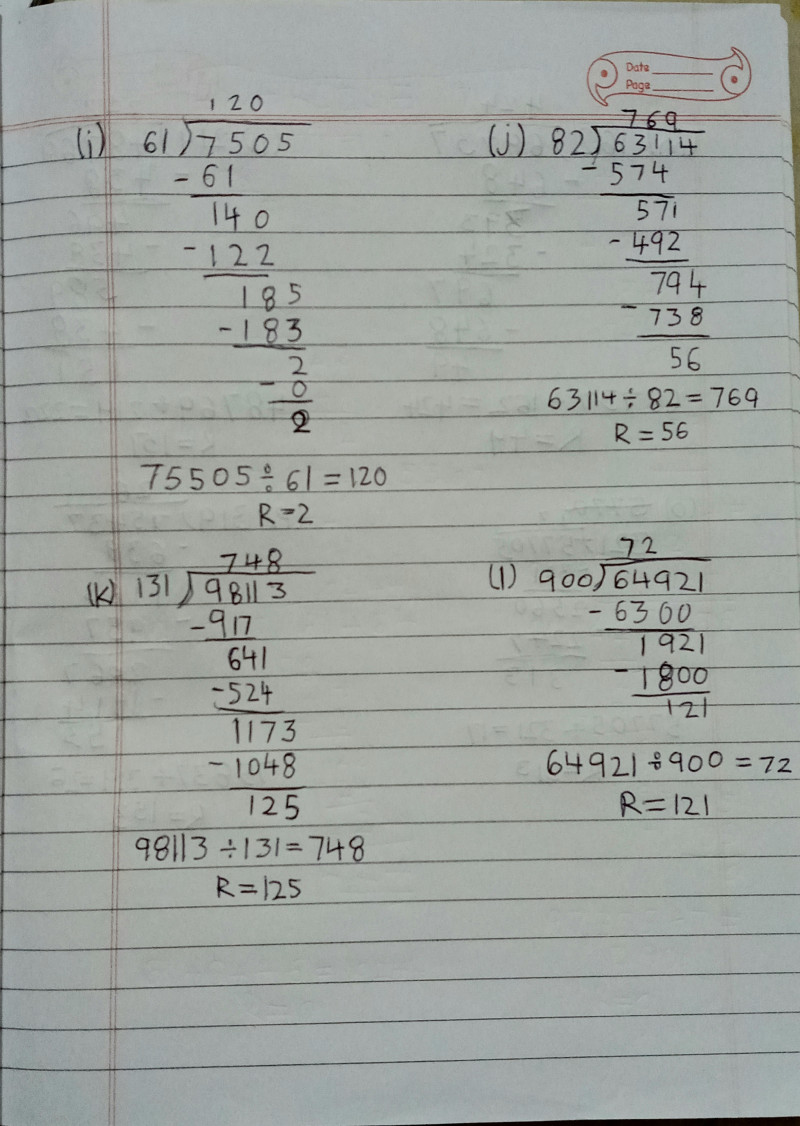 Date
Page
120
(i) 61)7505
-61
140
-122
185
-183
2
-0
2
75505÷61=120
R=2
769
(j) 82)63114
-574
571
-492
794
-738
56
63114÷82=769
R=56
748
(K) 131)98113
-917
641
-524
1173
-1048
125
98113÷131=748
R=125
72
(l) 900)64921
-6300
1921
-1800
121
64921÷900=72
R=121